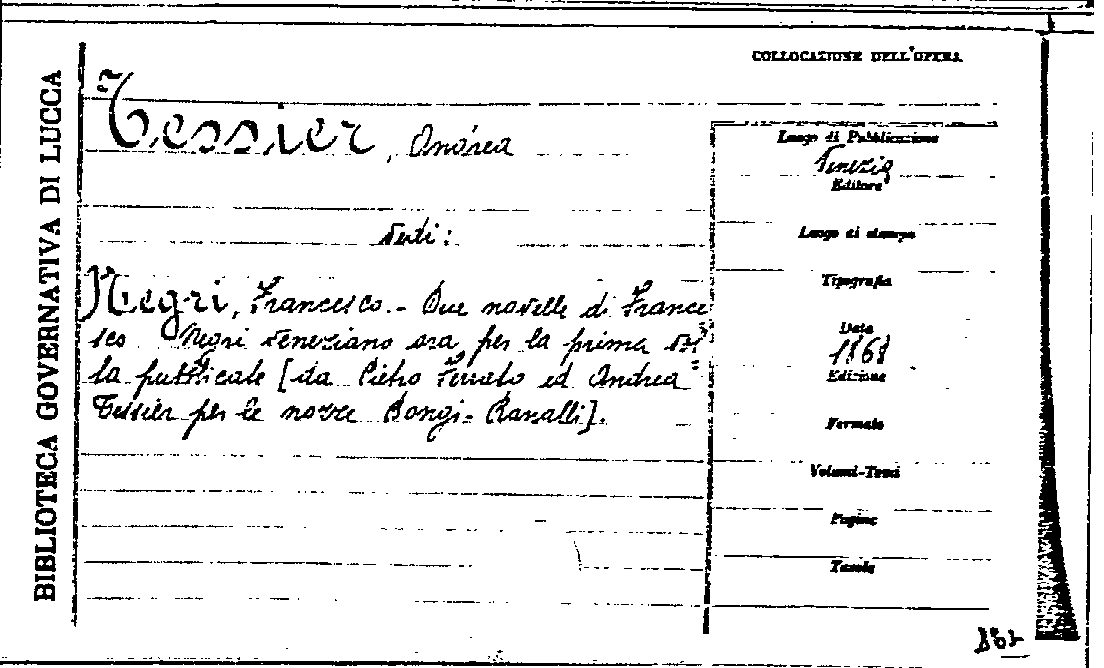 BIBLIOTECA GOVERNATIVA DI LUCCA
COLLOCAZIONE DELL'OPERA
Tessier, Andrea
Vedi:
Negri, Francesco. - Due novelle di France
sco Negri veneziano ora per la prima vol
ta pubblicate [da Pietro Ferrato ed Andrea
Tessier per le nozze Bongi-Ranalli].
Luogo di Pubblicazione
Venezia
Editore
Luogo di stampa
Tipografia
Data
1868
Edizione
Formato
Volumi-Tomi
Pagine
Tavole